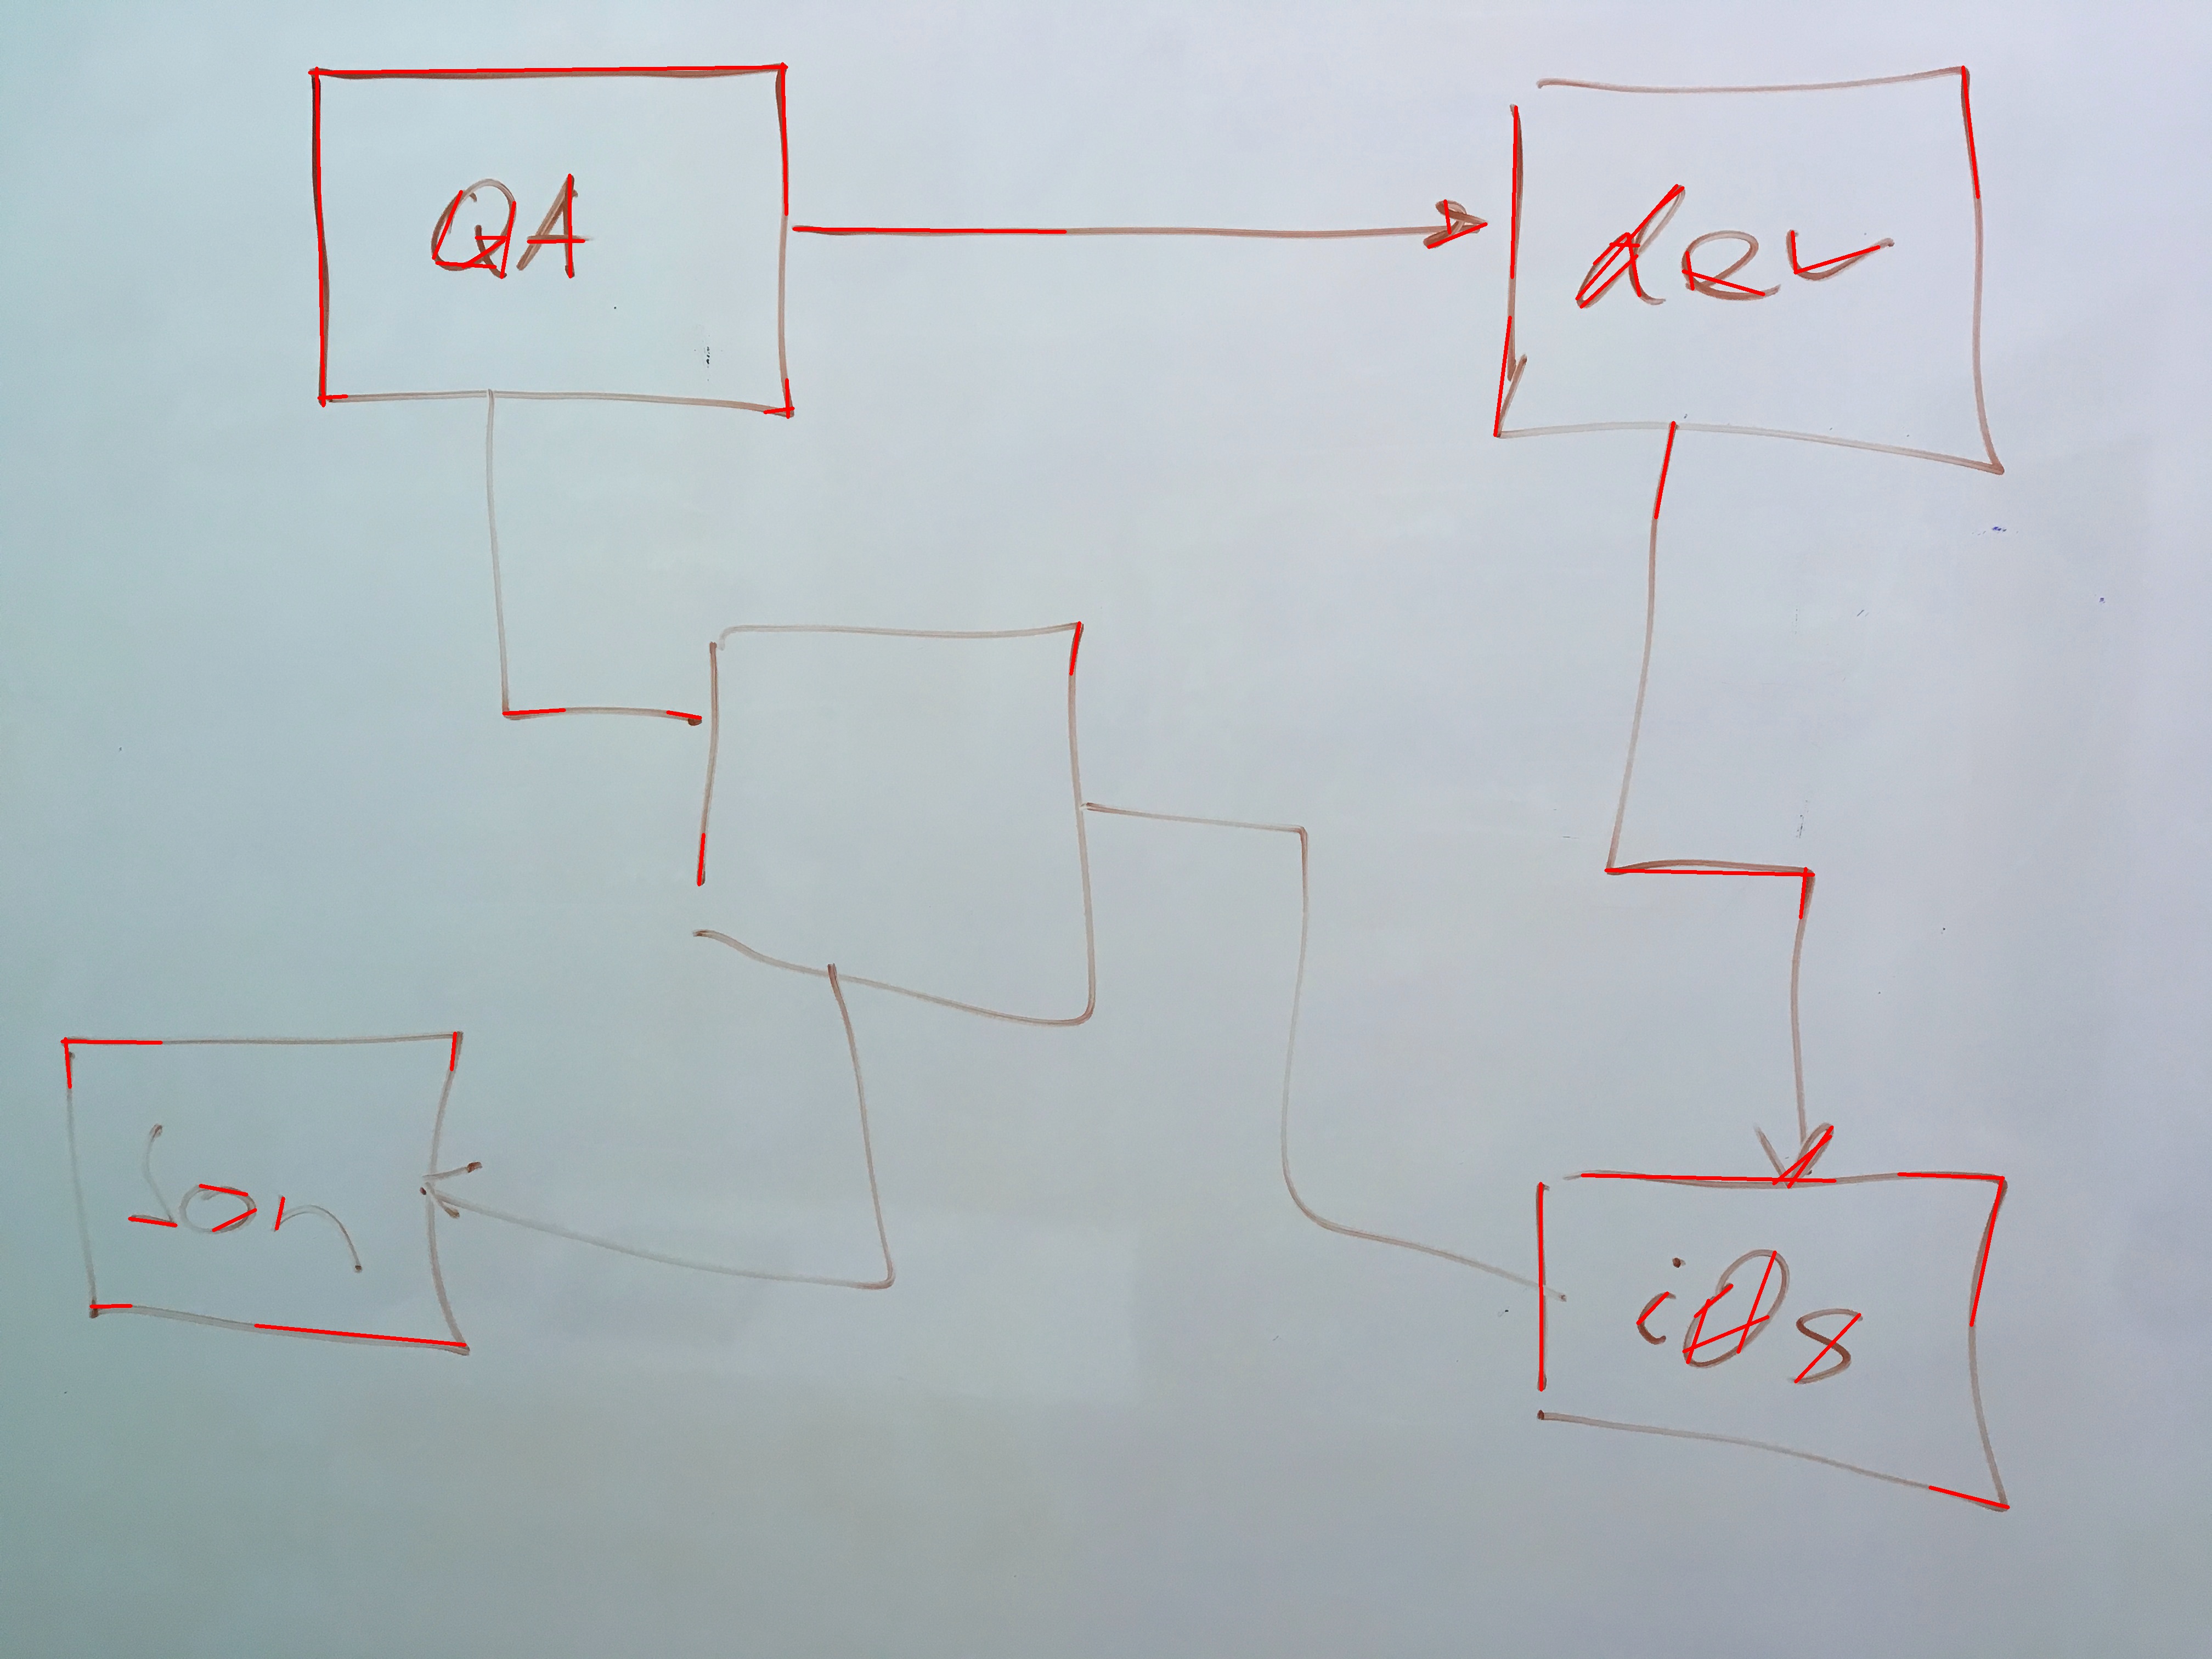 QA
dev
Son
iOs